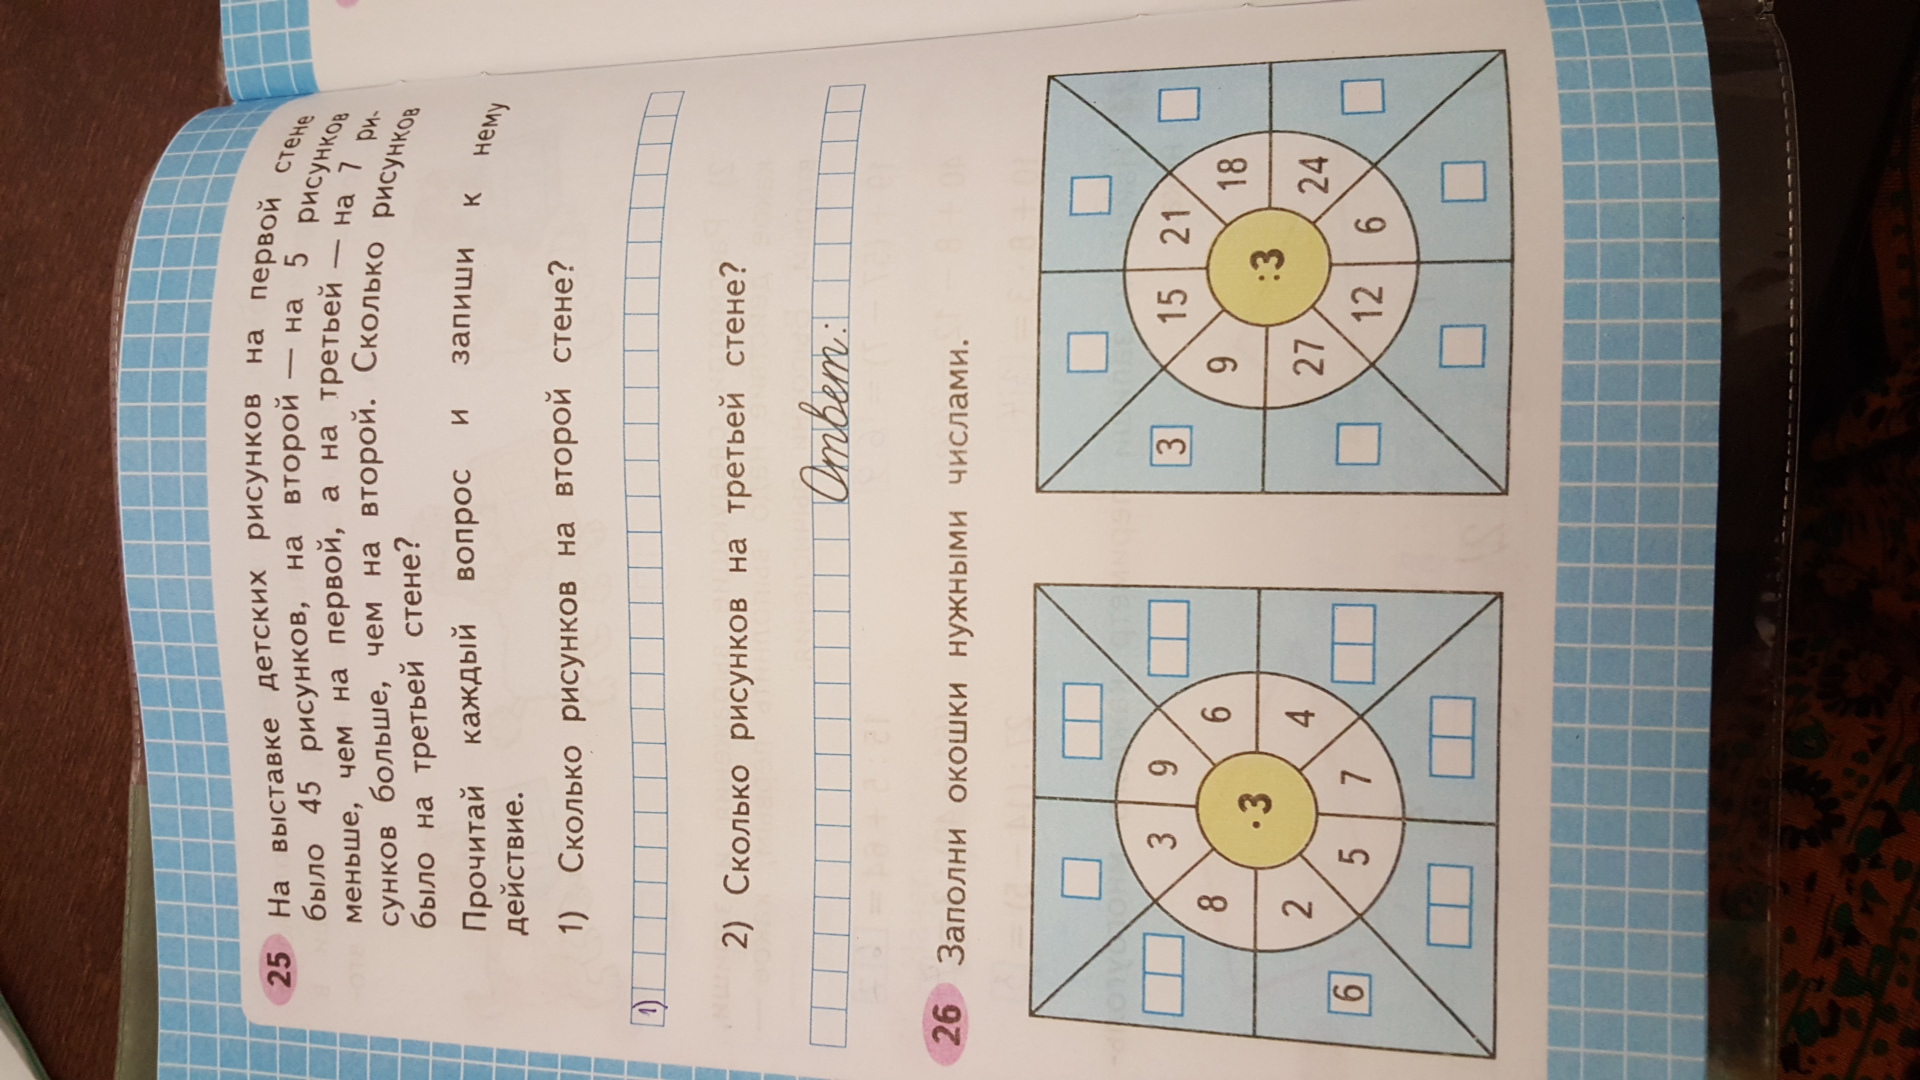 25 На выставке детских рисунков на первой стене
было 45 рисунков, на второй — на 5 рисунков
меньше, чем на первой, а на третьей — на 7 ри-
сунков больше, чем на второй. Сколько рисунков
было на третьей стене?
Прочитай каждый вопрос и запиши к нему
действие.
1) Сколько рисунков на второй стене?
1)
2) Сколько рисунков на третьей стене?
Ответ:
26 Заполни окошки нужными числами.
3 9
8 6
·3
2 4
6
5 7
15 21
3 9 18
:3
27 24
12 6